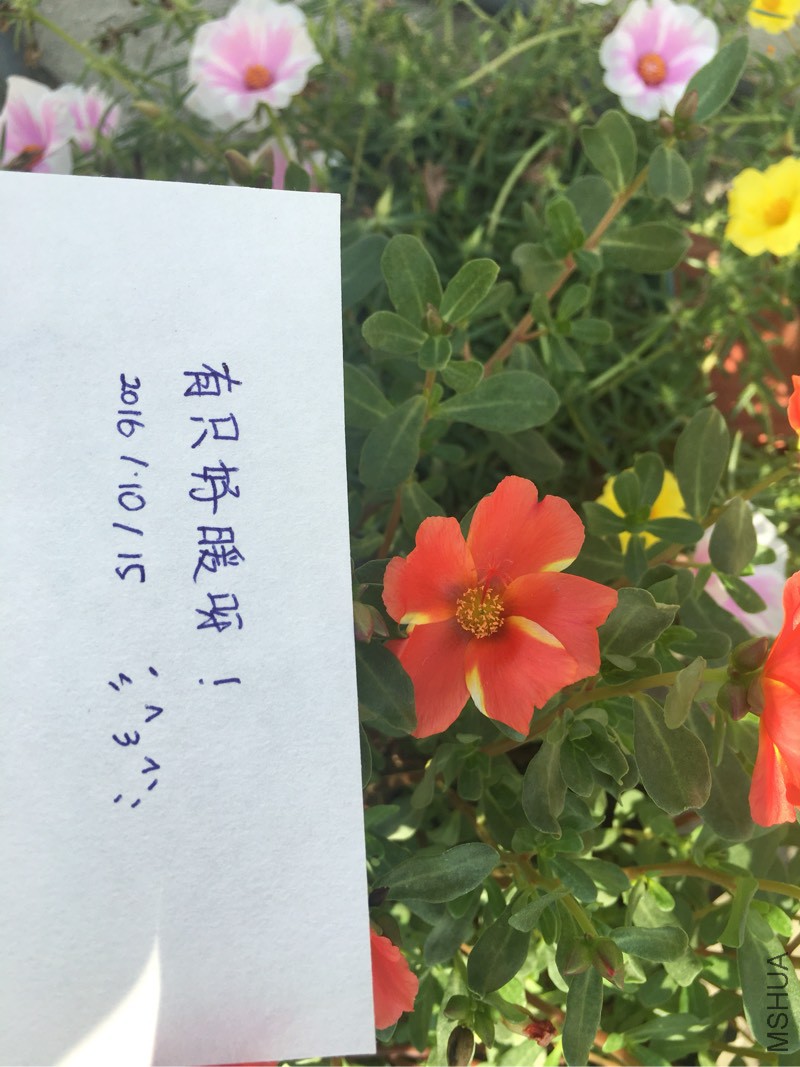 有只好暖呀！
2016/10/15
MSHUA